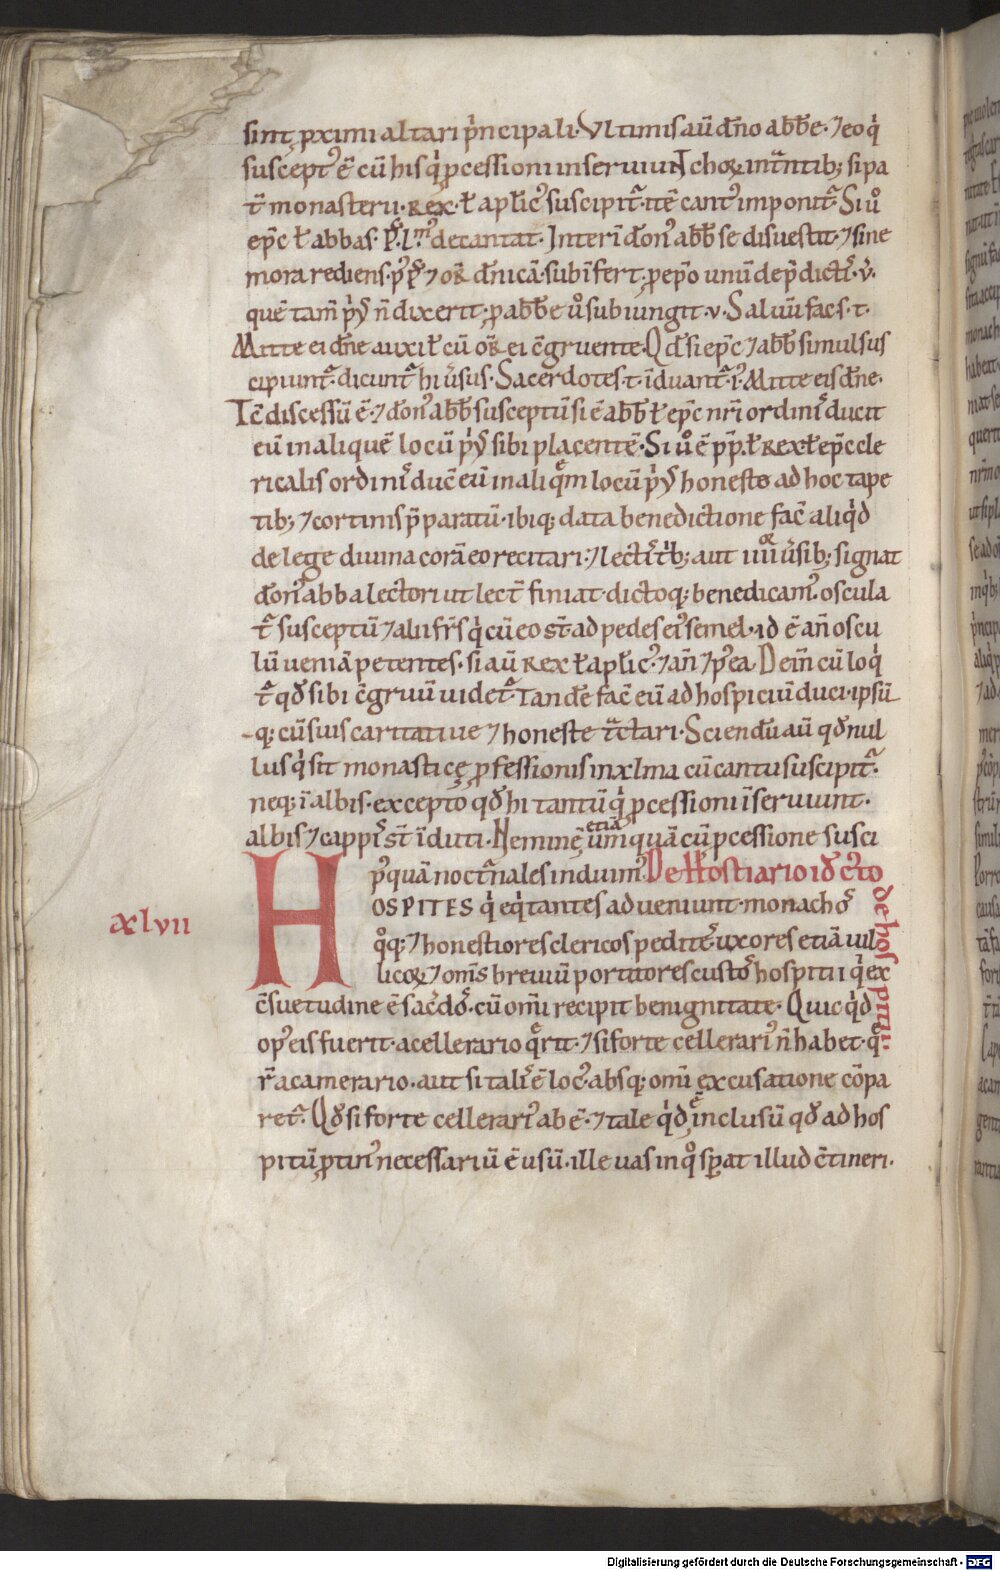 sint ꝓximi altari p̍ncipali. Vltimis aū dn̄o abb̄e. ⁊ eo q̍
suscept᷒ ē cū his q̍ ꝓcessioni inseruiut̄. I choꝝ int̄ntib; si pa
t̄ monasterii. rex. ł aplic᷒ suscipit᷑. itē cant᷒ imponit᷑. Si ů
epc̄ ł abbas. p̄s. l.m᷒ decantat. Interī don᷒ abb̄ se disuestit. ⁊ sine
mora rediens. p᷒ p̄s ⁊ or̄ dn̄icā. subīfert. ꝓ epo unū de p̄dictis. v̍.
quē tam̄ p̍us n̄ dixerit. ꝓ abb̄e ů subiungit. v. Saluū fac s. t.
Mitte ei dn̄e auxił cū or̄ ei c̄gruente. Qd̄ si epc̄ ⁊ abb̄ simul sus
cipiunt᷑. dicunt᷑ hi ūsus. Sacerdotes. t. īduant᷑. i᷒. Mitte eis dn̄e.
Ic̄ discessū ē. ⁊ don᷒ abb̄ susceptū si ē abb̄ ł epc̄ nr̄i ordinis ducit
eū in aliquē locū p̍us sibi placentē. Si ů ē pp̄. ł rex ł epc̄ cle
ricalis ordinis ducē eū in aliquē locū p̍us honeste ad hoc tape
tib; ⁊ cortinis p̄paratū. ibiq; data benedictione fac̄ aliq̍d
de lege diuina corā eo recitari. ⁊ lectis trib; aut iiiior ūsib; signat
don᷒ abba lectori ut lect̄ finiat. dictoq; benedicam᷒. oscula
t᷑ susceptū ⁊ alii frs̄ q̍ cū eo st̄. ad pedes ei᷒ semel. id ē an̄ oscu
lū ueniā petentes. si aū rex ł aplic᷒. ⁊ an̄ ⁊ p᷒ea. Dein̄ cū loq̍
t᷑ qd̄ sibi c̄gruū uidet᷑. Tandē fac̄ eū ad hospiciū duci. ipsū
q; cū suis caritatiue ⁊ honeste tractari. Sciendū aū qd̄ nul
lus q̍ sit monasticę ꝓfessionis in xlma cū cantu suscipit᷑.
neq; ī albis. excepto qd̄ hi tantū q̍ ꝓcessioni īseruiunt.
albis ⁊ cappis st̄ īduti. Neminē etiā umquā cū ꝓcessione susci
p᷒quā nocturnales induim᷒. De Hostiario id ē cto
de hospitiū.
xlvii
HOSPITES q̍ eq̍tantes adueniunt. monachos
q̊q; ⁊ honestiores clericos pedites. uxores etiā uil
licoꝝ ⁊ om̄s breuiū portitores custos hospitii q̍ ex
c̄suetudine ē sac̄dos. cū om̄i recipit benignitate. Quicq̍d
op᷒ eis fuerit. a cellerario querit. ⁊ si forte cellerari᷒ n̄ habet. que
r̄ a camerario. aut si talis ē loc᷒. absq; om̄i excusatione cōpa
ret᷑. Qd̄ si forte cellerari᷒ abē. ⁊ tale q̍d ē inclusū qd̄ ad hos
pitū ꝑtin᷒ necessariū ē usū. ille uas in q̊ sꝑat illud c̄tineri.
Digitalisierung gefördert durch die Deutsche Forschungsgemeinschaft - DFG